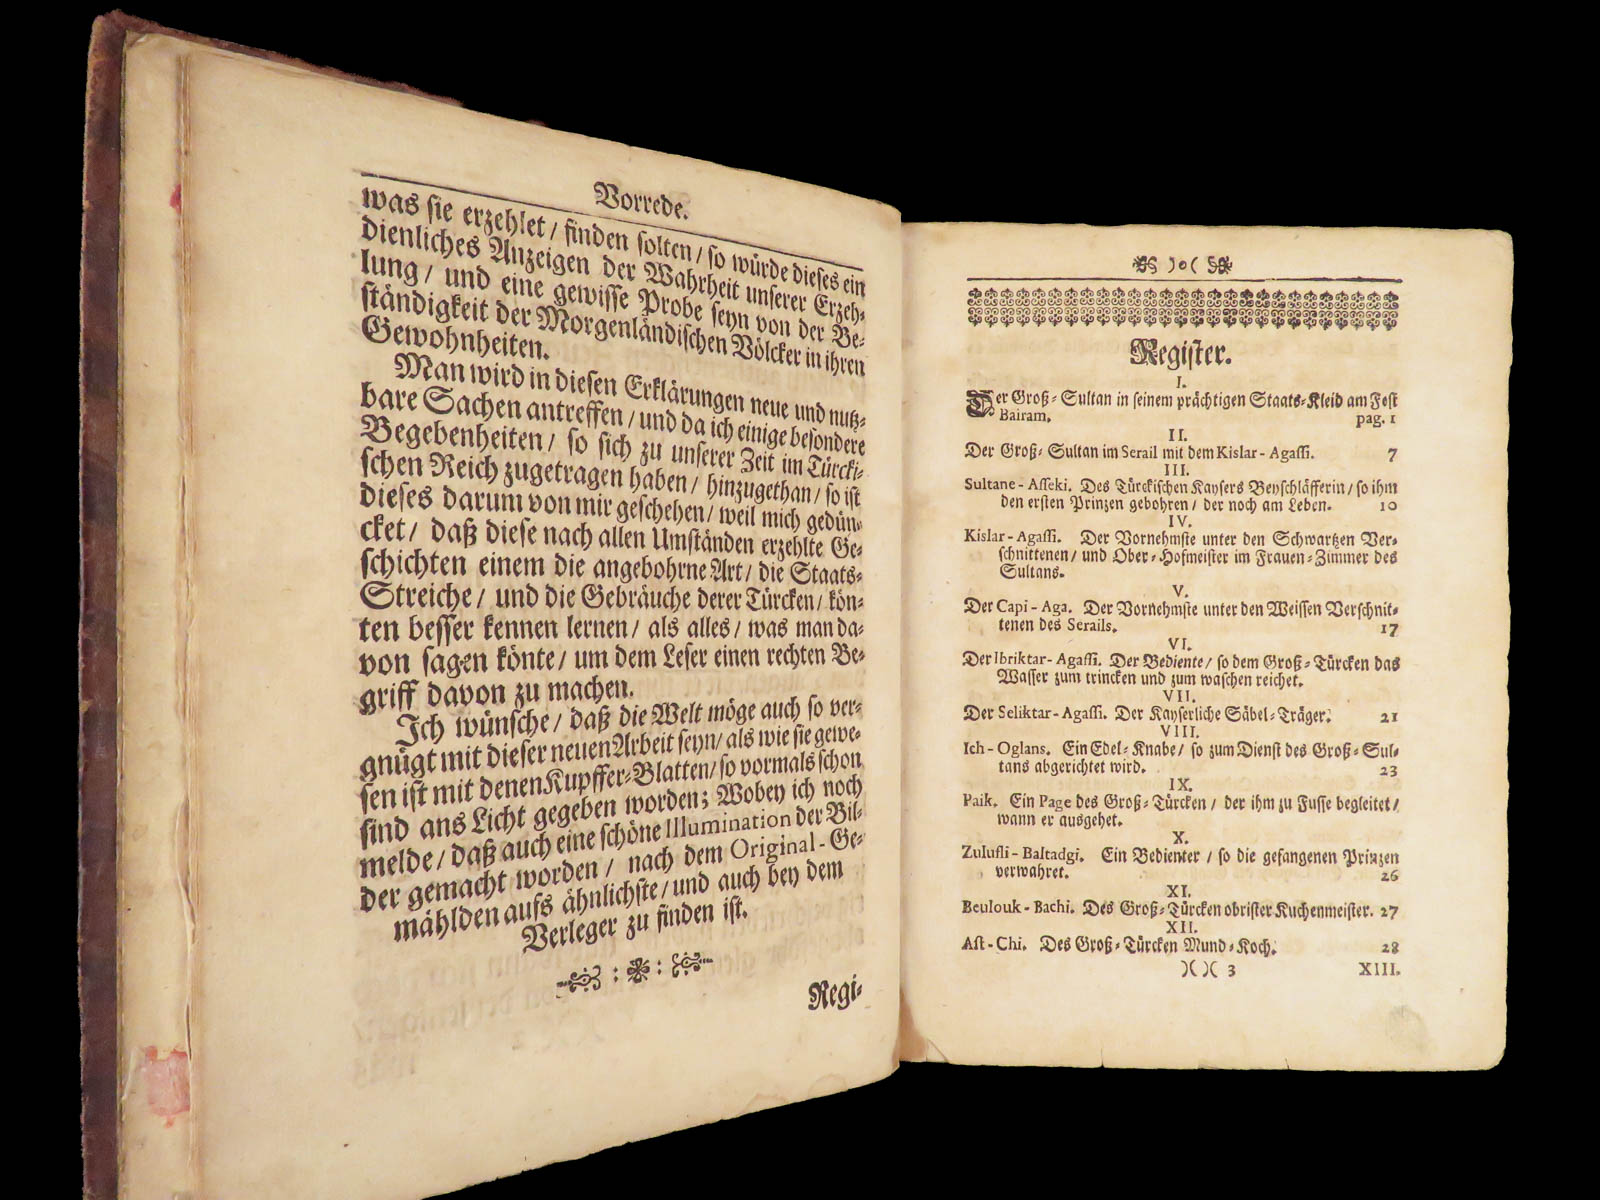 Vorrede.
was sie erzehlet / finden solten / so würde dieses ein
dienliches Anzeigen der Wahrheit unserer Erzeh-
lung / und eine gewisse Probe seyn von der Be-
ständigkeit der Morgenländischen Völcker in ihren
Gewohnheiten.
Man wird in diesen Erklärungen neue und nutz-
bare Sachen antreffen / und da ich einige besondere
Begebenheiten / so sich zu unserer Zeit im Türcki-
schen Reich zugetragen haben / hinzugethan / so ist
dieses darum von mir geschehen / weil mich gedün-
cket / daß diese nach allen Umständen erzehlte Ge-
schichten einem die angebohrne Art / die Staats-
Streiche / und die Gebräuche derer Türcken / kön-
ten besser kennen lernen / als alles / was man da-
von sagen könte / um dem Leser einen rechten Be-
griff davon zu machen.
Ich wünsche / daß die Welt möge auch so ver-
gnügt mit dieser neuen Arbeit seyn / als wie sie gewe-
sen ist mit denen Kupffer-Blatten / so vormals schon
sind ans Licht gegeben worden; Wobey ich noch
melde / daß auch eine schöne Illumination der Bil-
der gemacht worden / nach dem Original-Ge-
mählden aufs ähnlichste / und auch bey dem
Verleger zu finden ist.
Regi-
)o(
Register.
I.
Der Groß-Sultan in seinem prächtigen Staats-Kleid am Fest
Bairam. pag. 1
II.
Der Groß-Sultan im Serail mit dem Kislar-Agassi. 7
III.
Sultane-Asseki. Des Türckischen Kaysers Beyschläfferin / so ihm
den ersten Prinzen gebohren / der noch am Leben. 10
IV.
Kislar-Agassi. Der Vornehmste unter den Schwartzen Ver-
schnittenen / und Ober-Hofmeister im Frauen-Zimmer des
Sultans.
V.
Der Capi-Aga. Der Vornehmste unter den Weissen Verschnit-
tenen des Serails. 17
VI.
Der Ibriktar-Agassi. Der Bediente / so dem Groß-Türcken das
Wasser zum trincken und zum waschen reichet.
VII.
Der Seliktar-Agassi. Der Kayserliche Säbel-Träger. 21
VIII.
Ich-Oglans. Ein Edel-Knabe / so zum Dienst des Groß-Sul-
tans abgerichtet wird. 23
IX.
Paik. Ein Page des Groß-Türcken / der ihm zu Fusse begleitet /
wann er ausgehet.
X.
Zulufli-Baltadgi. Ein Bedienter / so die gefangenen Prinzen
verwahret. 26
XI.
Beulouk-Bachi. Des Groß-Türcken obrister Kuchenmeister. 27
XII.
Ast-Chi. Des Groß-Türcken Mund-Koch. 28
)( )( 3 XIII.